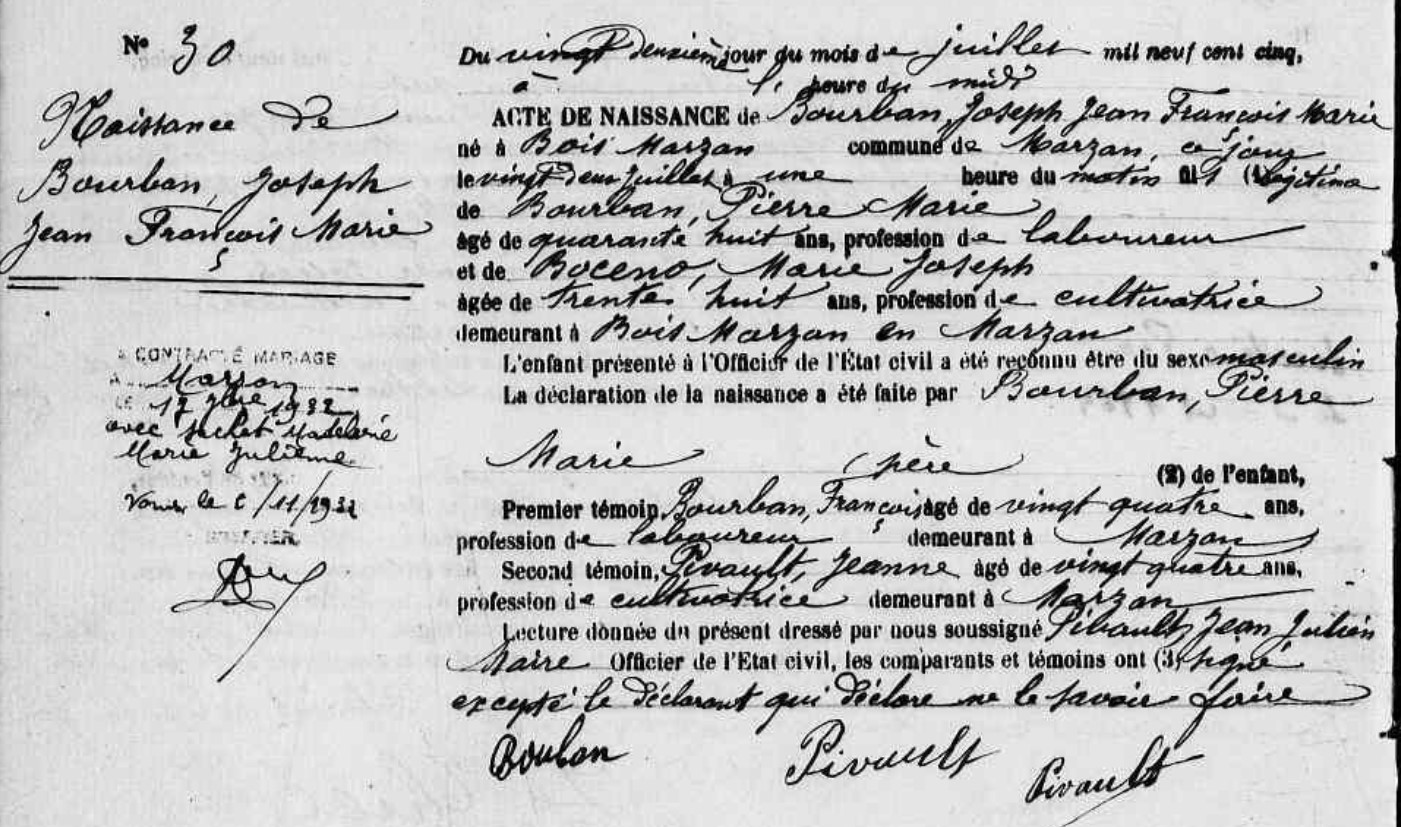 N° 30
Naissance de
Bourban, Joseph
Jean François Marie
A CONTRACTÉ MARIAGE
A Marzan
LE 17 9bre 1932
avec Madeleine
Marie Julienne
le /11/1932
Du vingt deuxième jour du mois de juillet mil neuf cent cinq,
à heure du midi
ACTE DE NAISSANCE de Bourban, Joseph Jean François Marie
né à Bois Marzan commune de Marzan, ce jour
le vingt deux juillet à une heure du matin fils (1) légitime
de Bourban, Pierre Marie
âgé de quarante huit ans, profession de laboureur
et de Boceno, Marie Joseph
âgée de trente huit ans, profession de cultivatrice
demeurant à Bois Marzan en Marzan
L'enfant présenté à l'Officier de l'État civil a été reconnu être du sexe masculin
La déclaration de la naissance a été faite par Bourban, Pierre
Marie père (2) de l'enfant,
Premier témoin, Bourban, François âgé de vingt quatre ans,
profession de laboureur demeurant à Marzan
Second témoin, Pivault, Jeanne âgé de vingt quatre ans,
profession de cultivatrice demeurant à Marzan
Lecture donnée du présent dressé par nous soussigné Pivault, Jean Julien
Maire Officier de l'Etat civil, les comparants et témoins ont (3) signé
excepté le déclarant qui déclare ne le savoir faire
Bourban Pivault Pivault